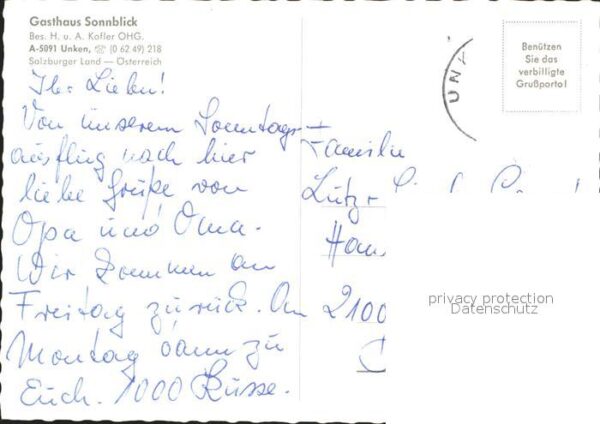 Gasthaus Sonnblick
Bes. H. u. A. Kofler OHG.
A-5091 Unken, ☏ (0 62 49) 218
Salzburger Land — Österreich
Ihr Lieben!
Von unserem Sonntags-
ausflug nach hier
liebe Grüße von
Opa und Oma.
Wir kommen am
Freitag zurück. Am
Montag dann zu
Euch. 1000 Küsse.
UNK
Benützen
Sie das
verbilligte
Grußporto!
Familie
2100
privacy protection
Datenschutz